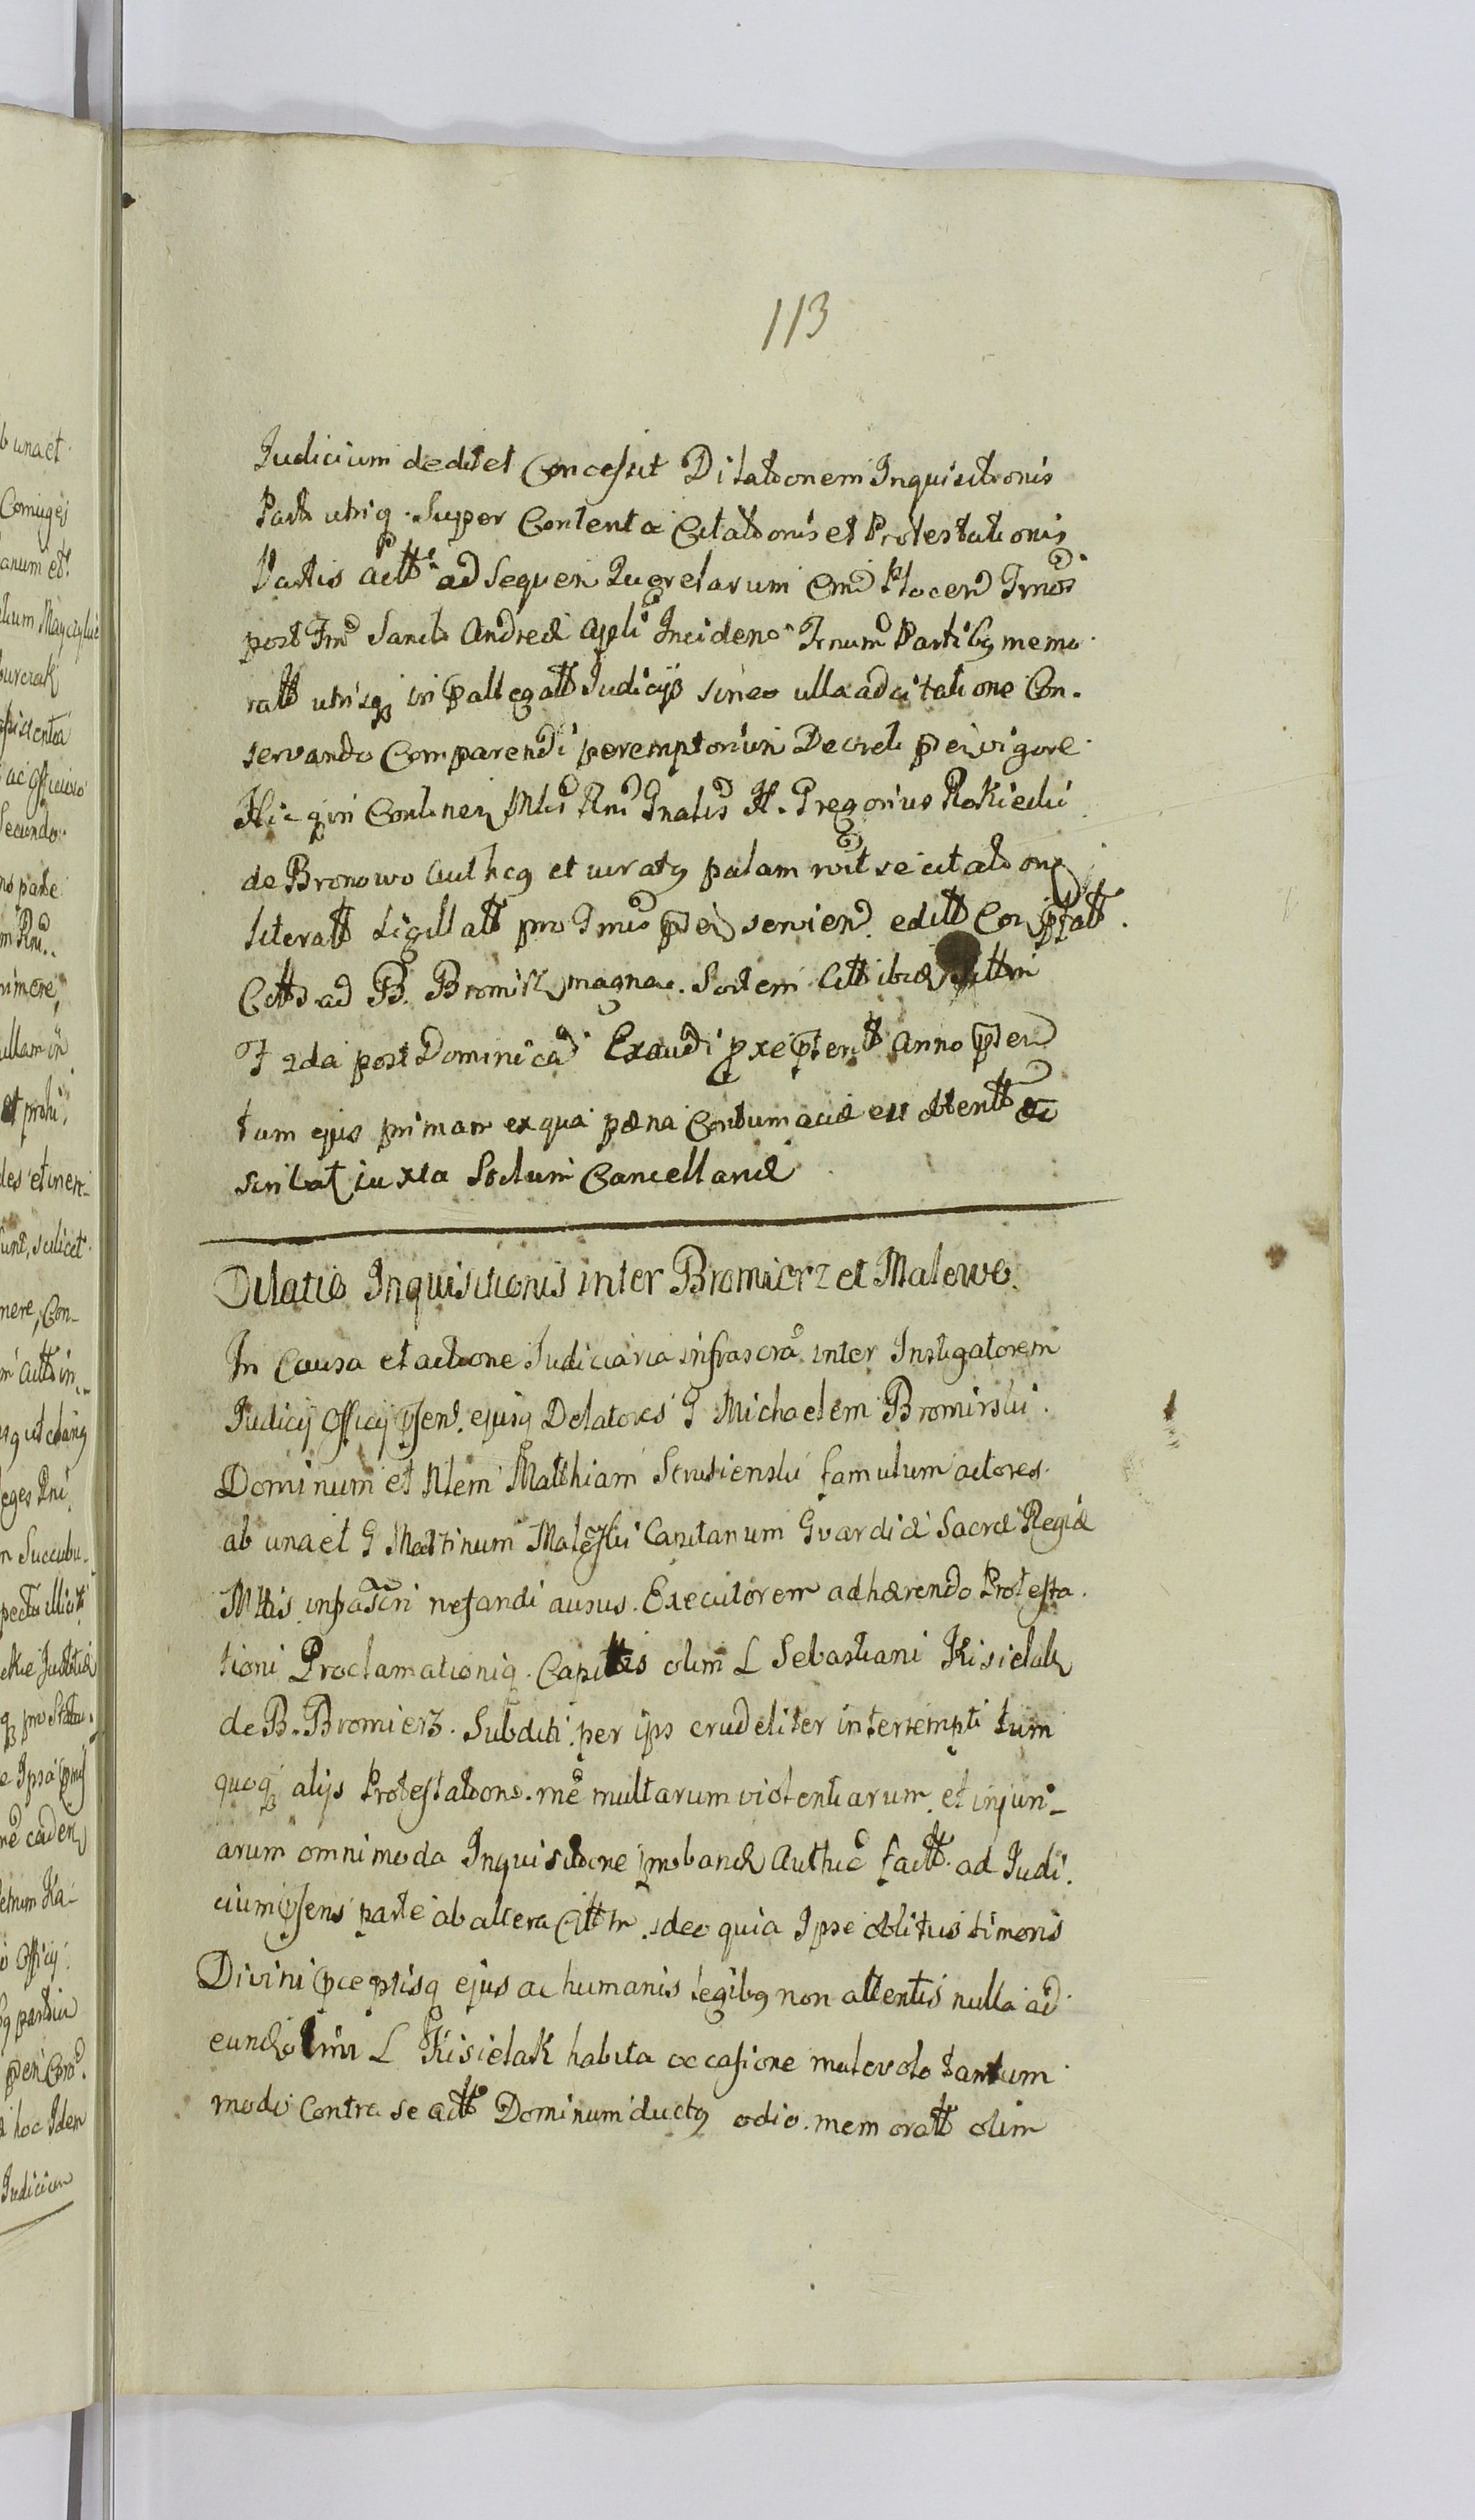 113
Judicium dedit et Concessit Dilationem Inquisitionis
Parti utriq. Super Contenta Citationis et Protestationis
Partis actt ad Sequen Querelarum Cmi Plocen Trnos
post Fm Sancti Andreæ Apli Inciden Trnum Partibq memo
ratt utrisq in pallegatt Judicijs sineo ulla adcitatione Con.
servando Comparendi peremptorium Decreti pen vigore
Hic qui Continen Mtis Rni Gnalis H. Gregorius Rokicki
de Bronowo Authcq et juratq palam rvit se citatione
literatt Sigillatt pro Trnis pten servien editt Con pfatt.
Cittt ad B. Bromirz magna. Sortem Citt ibid
F 2da post Dominica Exaudi pxe pterit Anno pten
tum ejus primam ex qua pæna Contumaciæ est obtentt &c
scribat juxta Solum Cancellariæ
Dilatio Inquisitionis inter Bromierz et Malewo.
In Causa et actione Judiciaria infrascra inter Instigatorem
Judicij Officij psens. ejusq Delatores G Michaelem Bromirski.
Dominum et Nlem Matthiam Strusienski famulum actores.
ab una et G Martinum Maleski Capitanum Gvardiæ Sacræ Regiæ
Mttis infascri nefandi ausus. Executorem adhærendo Protesta.
tioni Proclamationiq. Capittis olim L Sebastiani Kisielak
de B. Bromierz. Subditi per ips crudeliter interempti tum
quoq alijs Protestatione. me multarum violentiarum et injuri-
arum omnimoda Inquisitione proband Authc factt. ad Judi.
cium psens parte ab altera Cittm ideo quia Ipse oblitus timoris
Divini pceptisq ejus ac humanis legibq non attentis nulla ad
eund olim L Kisielak habita occasione malevolo tantum
modo Contra se actt Dominum ductq odio. memoratt olim